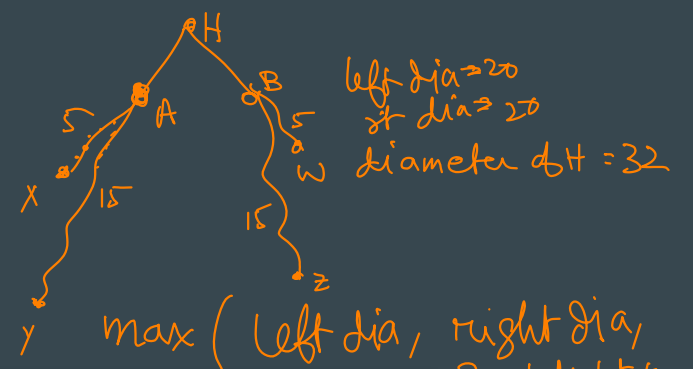 H
B
A
5
5
X
W
15
15
Z
y
left dia → 20
rt dia → 20
diameter of H = 32
max ( left dia, right dia,